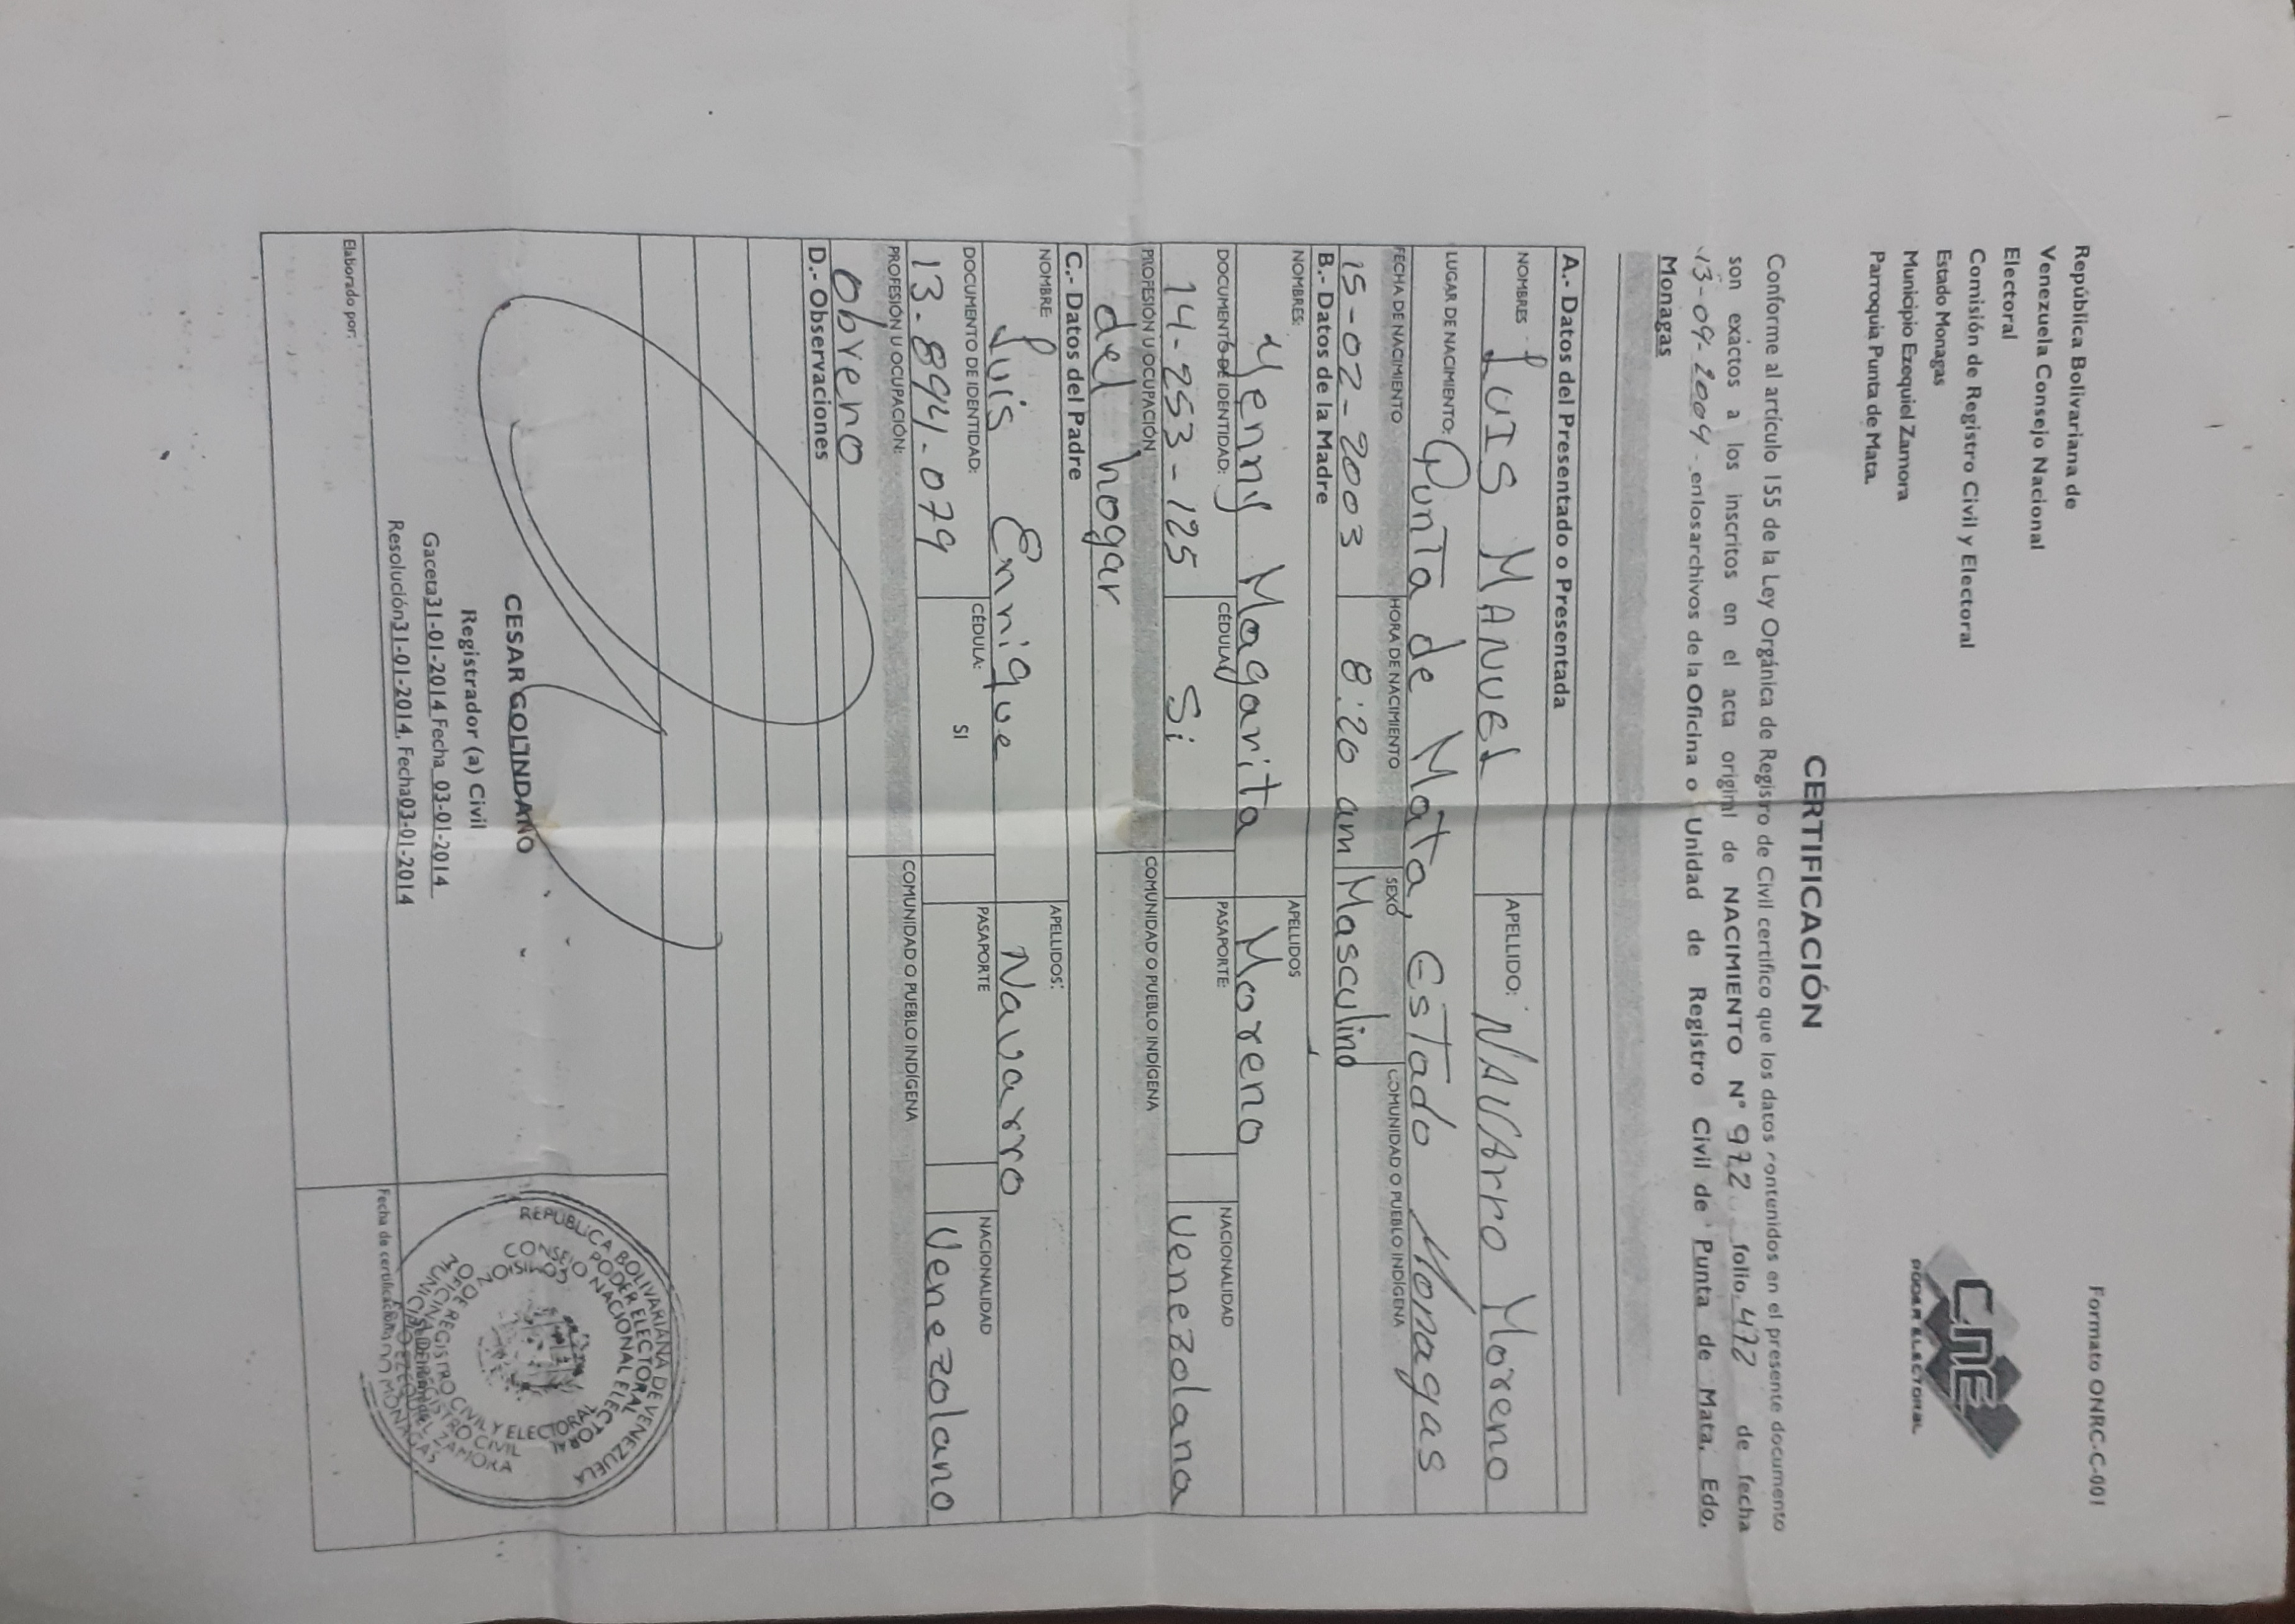 República Bolivariana de
Venezuela Consejo Nacional
Electoral
Comisión de Registro Civil y Electoral
Estado Monagas
Municipio Ezequiel Zamora
Parroquia Punta de Mata.
Formato ONRC-C-001
CNE
PODER ELECTORAL
CERTIFICACIÓN
Conforme al artículo 155 de la Ley Orgánica de Registro de Civil certifico que los datos contenidos en el presente documento
son exactos a los inscritos en el acta original de NACIMIENTO N° 972 folio 472 de fecha
13-09-2004 - enlosarchivos de la Oficina o Unidad de Registro Civil de Punta de Mata. Edo.
Monagas
A.- Datos del Presentado o Presentada
NOMBRES LUIS MANUEL APELLIDO: NAVArro Moreno
LUGAR DE NACIMIENTO: Punta de Mata, Estado Monagas
FECHA DE NACIMIENTO HORA DE NACIMIENTO SEXO COMUNIDAD O PUEBLO INDÍGENA
15-02-2003 8:20 am Masculino
B.- Datos de la Madre
NOMBRES: APELLIDOS
Yenny Magarita Moreno
DOCUMENTO DE IDENTIDAD: CÉDULA PASAPORTE: NACIONALIDAD
14-253-125 Si Venezolana
PROFESIÓN U OCUPACIÓN COMUNIDAD O PUEBLO INDÍGENA
del hogar
C.- Datos del Padre
NOMBRE APELLIDOS:
Luis Enrique Navarro
DOCUMENTO DE IDENTIDAD: CÉDULA: SI PASAPORTE NACIONALIDAD
13-894-079 Venezolano
PROFESIÓN U OCUPACIÓN: COMUNIDAD O PUEBLO INDÍGENA
obrero
D.- Observaciones
CESAR GOLINDANO
Registrador (a) Civil
Gaceta31-01-2014 Fecha 03-01-2014
Resolución31-01-2014, Fecha03-01-2014
REPUBLICA BOLIVARIANA DE VENEZUELA
PODER ELECTORAL
CONSEJO NACIONAL ELECTORAL
REGISTRO CIVIL Y ELECTORAL
Elaborado por:
Fecha de certificación